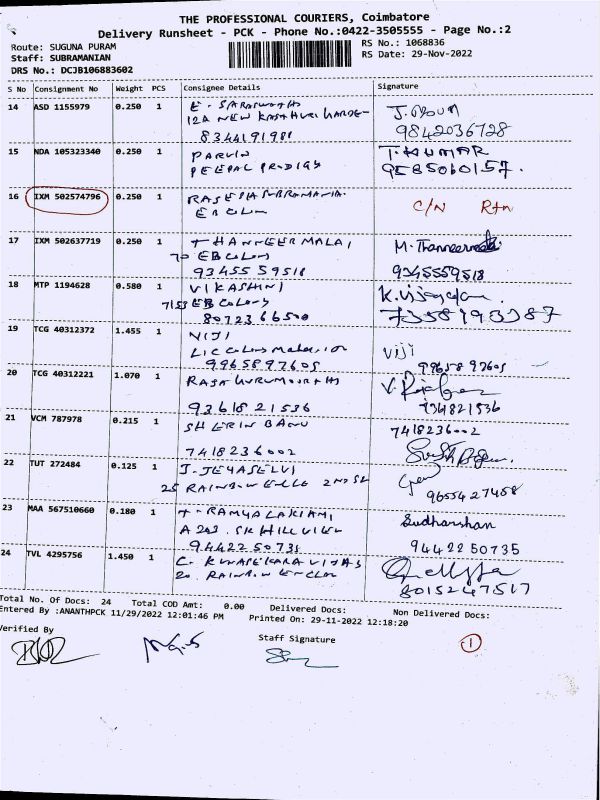 THE PROFESSIONAL COURIERS, Coimbatore
Delivery Runsheet - PCK - Phone No.:0422-3505555 - Page No.:2
Route: SUGUNA PURAM
Staff: SUBRAMANIAN
DRS No.: DCJB106883602
RS No.: 1068836
RS Date: 29-Nov-2022
S No Consignment No Weight PCS Consignee Details Signature
14 ASD 1155979 0.250 1 E. SARASWATHI
12A NEW
8344191981
9842036728
15 NDA 105323340 0.250 1 PARVIN T. KUMAR
PEEPAL PRODIGY 9585060157.
16 IXM 502574796 0.250 1 C/N Rtn
17 IXM 502637719 0.250 1 THANNEERMALAI M. Thanneermalai
70 EB COLONY
93455 59518 9345559518
18 MTP 1194628 0.580 1 VIKASHINI
7153 EB COLONY
80723 66500 7358193387
19 TCG 40312372 1.455 1 VIJI VIJI
LIC
9965897605 9965897605
20 TCG 40312221 1.070 1
93618 21536
21 VCM 787978 0.215 1 SHERIN BANU 7418236002
7418236002
22 TUT 272484 0.125 1 J. JEYASELVI
25 RAINBOW 2ND ST 9655427458
23 MAA 567510660 0.180 1 T. RAMYA LAKSHMI Sudharshan
A 203. SK HILL VIEW
9442250735 9442250735
24 TVL 4295756 1.450 1 C.
20. RAINBOW 8015247517
Total No. Of Docs: 24 Total COD Amt: 0.00 Delivered Docs: Non Delivered Docs:
Entered By :ANANTHPCK 11/29/2022 12:01:46 PM Printed On: 29-11-2022 12:18:20
Verified By Staff Signature
1